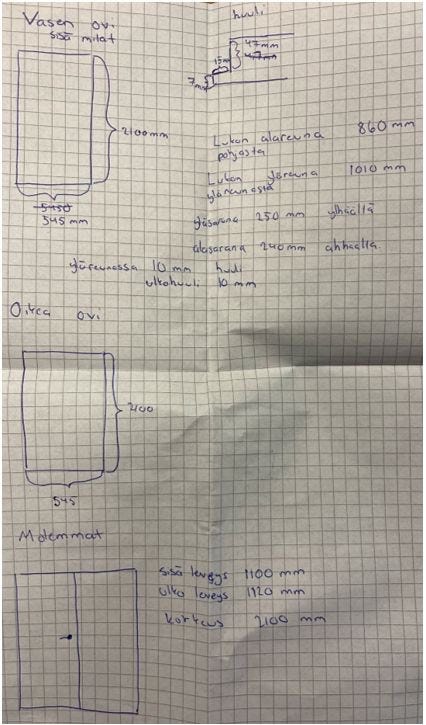 Vasen ovi
sisä mitat
2100mm
5450
545 mm
huuli
47mm
47mm
15mm
7mm
Lukon alareuna 860 mm
pohjasta
Lukon yläreuna 1010 mm
yläreunasta
yläsarana 250 mm ylhäällä
alasarana 240mm alhaalla
yläreunassa 10 mm huuli
ulkohuuli 10 mm
Oikea ovi
2100
545
Molemmat
sisä leveys 1100 mm
ulko leveys 1120 mm
korkeus 2100 mm